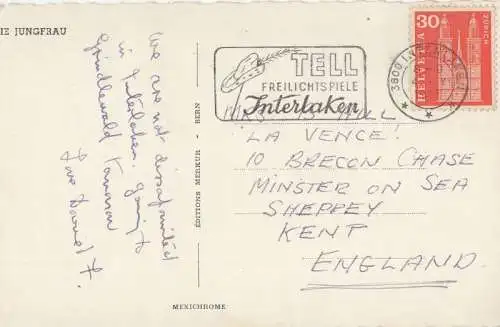 IE JUNGFRAU
We are not dissapointed
in Interlaken. Going to
Grindlewald Tomorrow
ÉDITIONS MERKUR - BERN
MEXICHROME
TELL
FREILICHTSPIELE
Interlaken
3800 INTERLAKEN
HELVETIA
30
ZÜRICH
HILL
LA VENCE!
10 BRECON CHASE
MINSTER ON SEA
SHEPPEY
KENT
ENGLAND